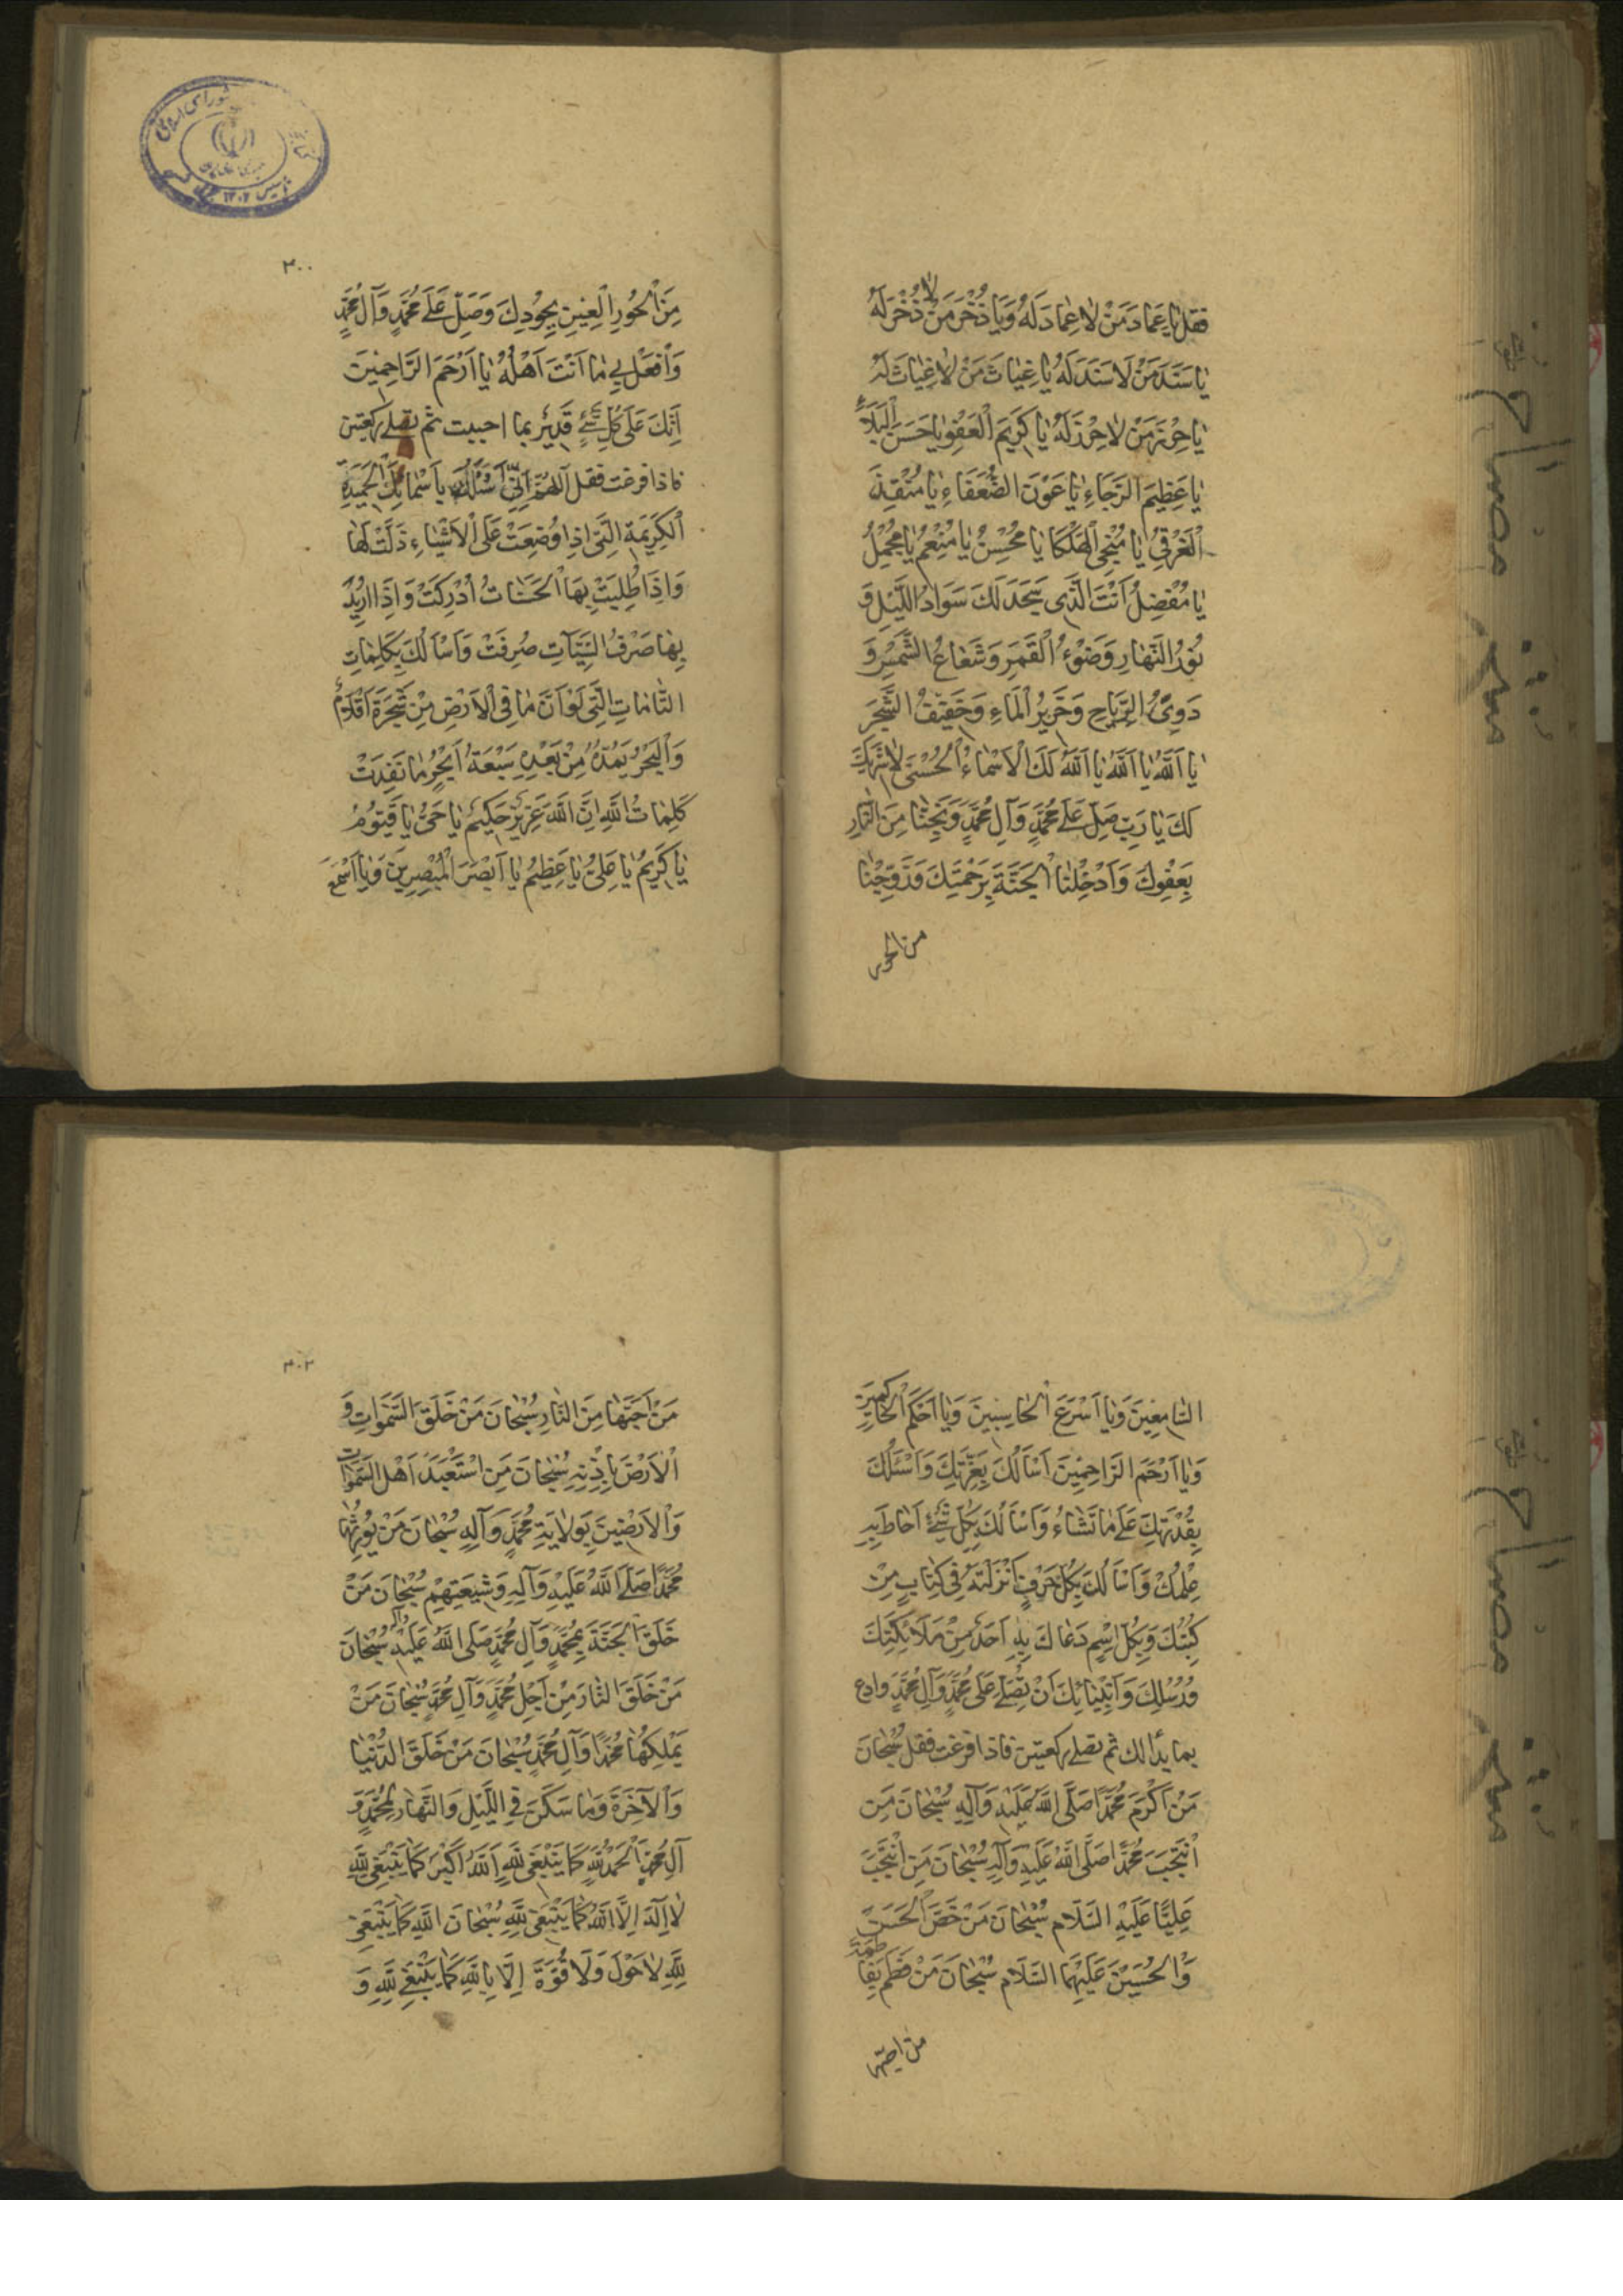 فقل يا عِمَادَ مَنْ لا عِمادَ لَهُ وَيا ذُخْرَ مَنْ لا ذُخْرَ لَهُ
يا سَنَدَ مَنْ لا سَنَدَ لَهُ يا غِياثَ مَنْ لا غِياثَ لَهُ
يا حِرْزَ مَنْ لا حِرْزَ لَهُ يا كَرِيمَ الْعَفْوِ يا حَسَنَ الْبَلاءِ
يا عَظِيمَ الرَّجَاءِ يا عَوْنَ الضُّعَفَاءِ يا مُنْقِذَ
الْغَرْقى يا مُنْجِيَ الْهَلْكَا يا مُحْسِنُ يا مُنْعِمُ يا مُجْمِلُ
يا مُفْضِلُ اَنْتَ الَّذِي سَجَدَ لَكَ سَوادُ اللَّيْلِ وَ
نُورُ النَّهارِ وَضَوْءُ الْقَمَرِ وَشَعاعُ الشَّمْسِ وَ
دَوِيُّ الرِّياحِ وَخَرِيرُ الْماءِ وَحَفِيفُ الشَّجَرِ
يا اَللَّهُ يا اَللَّهُ يا اَللَّهُ لَكَ الْاَسْماءُ الْحُسْنى لا شَرِيكَ
لَكَ يا رَبِّ صَلِّ عَلى مُحَمَّدٍ وَآلِ مُحَمَّدٍ وَنَجِّنا مِنَ النَّارِ
بِعَفْوِكَ وَاَدْخِلْنَا الْجَنَّةَ بِرَحْمَتِكَ وَزَوِّجْنا
من الحور
٣٠٠
مِنَ الْحُورِ الْعِينِ بِجُودِكَ وَصَلِّ عَلى مُحَمَّدٍ وَآلِ مُحَمَّدٍ
وَافْعَلْ بِي ما اَنْتَ اَهْلُهُ يا اَرْحَمَ الرَّاحِمِينَ
اِنَّكَ عَلى كُلِّ شَيْءٍ قَدِيرٌ بما احببت ثم تصلى ركعتين
فاذا فرغت فقل اَللَّهُمَّ اِنِّي اَسْئَلُكَ بِاَسْمائِكَ الْحَمِيدَةِ
الْكَرِيمَةِ الَّتِي اِذا وُضِعَتْ عَلَى الْاَشْياءِ ذَلَّتْ لَها
وَاِذَا طُلِبَتْ بِهَا الْحَسَناتُ اُدْرِكَتْ وَاِذَا اُرِيدَ
بِها صَرْفُ السَّيِّئاتِ صُرِفَتْ وَاَسْاَلُكَ بِكَلِماتِكَ
التَّامَّاتِ الَّتِي لَوْ اَنَّ ما فِي الْاَرْضِ مِنْ شَجَرَةٍ اَقْلامٌ
وَالْبَحْرُ يَمُدُّهُ مِنْ بَعْدِهِ سَبْعَةُ اَبْحُرٍ ما نَفِدَتْ
كَلِماتُ اللَّهِ اِنَّ اللَّهَ عَزِيزٌ حَكِيمٌ يا حَيُّ يا قَيُّومُ
يا كَرِيمُ يا عَلِيُّ يا عَظِيمُ يا اَبْصَرَ الْمُبْصِرِينَ وَيا اَسْمَعَ
السَّامِعِينَ وَيا اَسْرَعَ الْحاسِبِينَ وَيا اَحْكَمَ الْحاكِمِينَ
وَيا اَرْحَمَ الرَّاحِمِينَ اَسْاَلُكَ بِعِزَّتِكَ وَاَسْئَلُكَ
بِقُدْرَتِكَ عَلى ما تَشاءُ وَاَسْاَلُكَ بِكُلِّ شَيْءٍ اَحاطَ بِهِ
عِلْمُكَ وَاَسْاَلُكَ بِكُلِّ حَرْفٍ اَنْزَلْتَهُ فِي كِتابٍ مِنْ
كُتُبِكَ وَبِكُلِّ اِسْمٍ دَعاكَ بِهِ اَحَدٌ مِنْ مَلائِكَتِكَ
وَرُسُلِكَ وَاَنْبِيائِكَ اَنْ تُصَلِّيَ عَلى مُحَمَّدٍ وَآلِ مُحَمَّدٍ وادع
بما بدا لك ثم تصلى ركعتين فاذا فرغت فقل سُبْحانَ
مَنْ اَكْرَمَ مُحَمَّدًا صَلَّى اللَّهُ عَلَيْهِ وَآلِهِ سُبْحانَ مَنِ
انْتَجَبَ مُحَمَّدًا صَلَّى اللَّهُ عَلَيْهِ وَآلِهِ سُبْحانَ مَنِ انْتَجَبَ
عَلِيًّا عَلَيْهِ السَّلام سُبْحانَ مَنْ خَصَّ الْحَسَنَ
وَالْحُسَيْنَ عَلَيْهِمَا السَّلام سُبْحانَ مَنْ فَطَمَ بِفاطِمَةَ
من احبها
٣٠٢
مَنْ اَحَبَّها مِنَ النَّارِ سُبْحانَ مَنْ خَلَقَ السَّمَواتِ وَ
الْاَرْضَ بِاِذْنِهِ سُبْحانَ مَنِ اسْتَعْبَدَ اَهْلَ السَّمَواتِ
وَالْاَرَضِينَ بِوِلايَةِ مُحَمَّدٍ وَآلِهِ سُبْحانَ مَنْ يُورِثُها
مُحَمَّدًا صَلَّى اللَّهُ عَلَيْهِ وَآلِهِ وَشِيعَتِهِمْ سُبْحانَ مَنْ
خَلَقَ الْجَنَّةَ بِمُحَمَّدٍ وَآلِ مُحَمَّدٍ صَلَى اللَّهُ عَلَيْهِ وآله سُبْحانَ
مَنْ خَلَقَ النَّارَ مِنْ اَجْلِ مُحَمَّدٍ وَآلِ مُحَمَّدٍ سُبْحانَ مَنْ
يَمْلِكُها مُحَمَّدًا وَآلِ مُحَمَّدٍ سُبْحانَ مَنْ خَلَقَ الدُّنْيا
وَالْآخِرَةَ وَما سَكَنَ فِي اللَّيْلِ وَالنَّهارِ لِمُحَمَّدٍ وَ
آلِ مُحَمَّدٍ اَلْحَمْدُ لِلَّهِ كَما يَنْبَغِي لِلَّهِ اَللَّهُ اَكْبَرُ كَما يَنْبَغِي لِلَّهِ
لا اِلَهَ اِلَّا اللَّهُ كَما يَنْبَغِي لِلَّهِ سُبْحانَ اللَّهِ كَما يَنْبَغِي
لِلَّهِ لا حَوْلَ وَلا قُوَّةَ اِلَّا بِاللَّهِ كَما يَنْبَغِي لِلَّهِ وَ